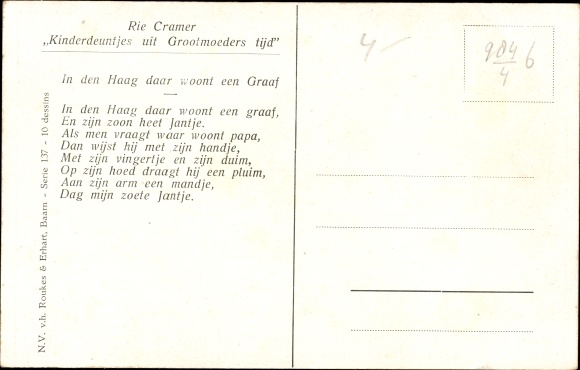 Rie Cramer
„Kinderdeuntjes uit Grootmoeders tijd"
In den Haag daar woont een Graaf
In den Haag daar woont een graaf,
En zijn zoon heet Jantje.
Als men vraagt waar woont papa,
Dan wijst hij met zijn handje,
Met zijn vingertje en zijn duim,
Op zijn hoed draagt hij een pluim,
Aan zijn arm een mandje,
Dag mijn zoete Jantje.
N.V. v.h. Roukes & Erhart, Baarn - Serie 137 - 10 dessins
4 -
984 6
4